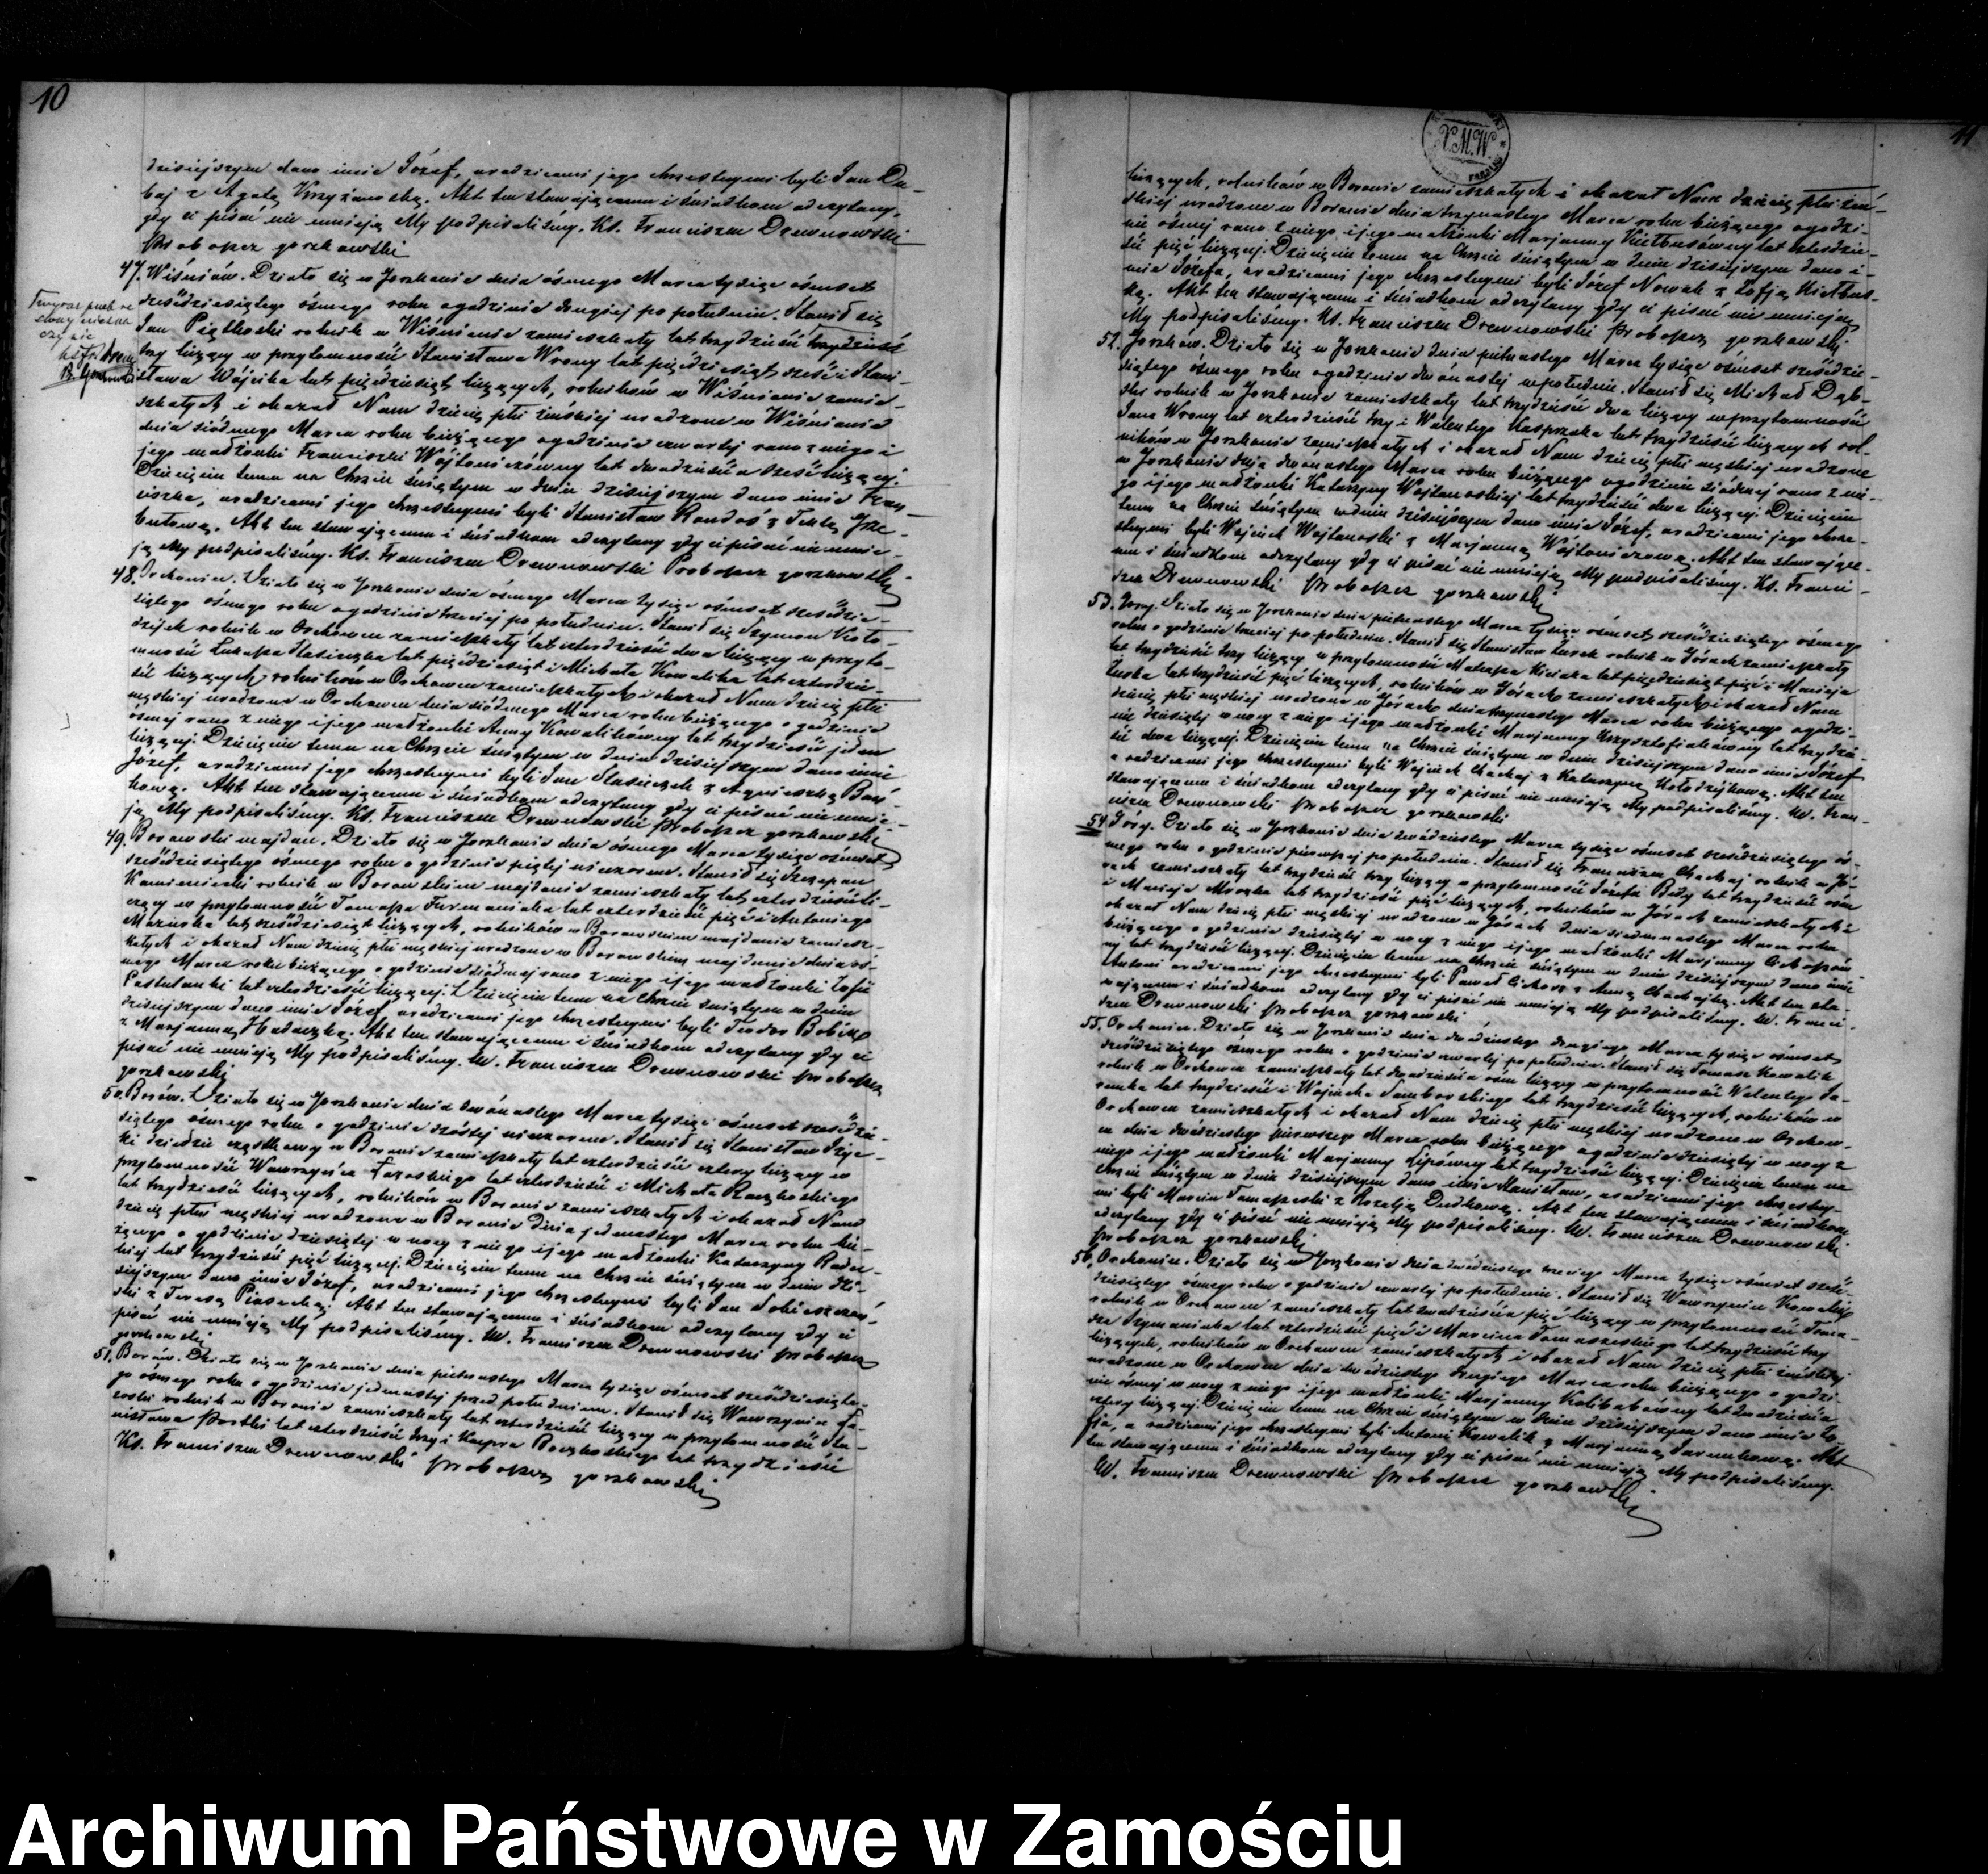 10
dzisiejszym dano imie Józef, a rodzicami jego chrzestnymi byli Jan Du-
baj z Agatą Krzyżanoską. Akt ten stawającemu i świadkom odczytany,
gdy ci pisać nie umieją My podpisaliśmy. Ks. Franciszek Drewnowski
Proboszcz gorzkowski
47. Wiśniów. Działo się w Gorzkowie dnia ósmego Marca tysiąc ośmset
sześdziesiątego ósmego roku o godzinie drugiej po południu. Stawił się
Jan Piątkoski rolnik w Wiśniowie zamieszkały lat trzydzieści trzydzieści
trzy liczący w przytomności Stanisława Wrony lat pięździesiąt sześć i Stani-
sława Wójcika lat pięździesiąt liczących, rolników w Wiśniowie zamie-
szkałych i okazał Nam dziecię płci żeńskiej urodzone w Wiśniowie
dnia siódmego Marca roku bieżącego o godzinie czwartej rano z niego i
jego małżonki Franciszki Wójtowiczówny lat dwadzieścia sześć liczącej.
Dziecięciu temu na Chrzcie świętym w dniu dzisiejszym dano imie Fran-
ciszka, a rodzicami jego chrzestnymi byli Stanisław z Teklą
Akt ten stawającemu i świadkom odczytany gdy ci pisać nie umie-
ją My podpisaliśmy. Ks. Franciszek Drewnowski Proboszcz gorzkowski
48. Orchowiec. Działo się w Gorzkowie dnia ósmego Marca tysiąc ośmset sześdzie-
siątego ósmego roku o godzinie trzeciej po południu. Stawił się Szymon Koło-
dzijek rolnik w Orchowcu zamieszkały lat czterdzieści dwa liczący w przyto-
mności Łukasza Stasieczka lat pięździesiąt i Michała Kowalika lat czterdzie-
ści liczących, rolników w Orchowcu zamieszkałych i okazał Nam dziecię płci
męskiej urodzone w Orchowcu dnia siódmego Marca roku bieżącego o godzinie
ósmej rano z niego i jego małżonki Anny Kowalikówny lat trzydzieści jeden
liczącej. Dziecięciu temu na Chrzcie świętym w dniu dzisiejszym dano imie
Józef, a rodzicami jego chrzestnymi byli Jan Stasieczek z Agnieszką
Akt ten stawającemu i świadkom odczytany gdy ci pisać nie umie-
ją My podpisaliśmy. Ks. Franciszek Drewnowski Proboszcz gorzkowski
49. Borowski majdan. Działo się w Gorzkowie dnia ósmego Marca tysiąc ośmset
sześdziesiątego ósmego roku o godzinie piątej wieczorem. Stawił się Szczepan
Kamieniecki rolnik w Borowskim majdanie zamieszkały lat czterdzieści li-
czący w przytomności Tomasza Furmaniaka lat czterdzieści pięć i Antoniego
Mazurka lat sześdziesiąt liczących, rolników w Borowskim majdanie zamiesz-
kałych i okazał Nam dziecię płci męskiej urodzone w Borowskim majdanie dnia ós-
mego Marca roku bieżącego o godzinie siódmej rano z niego i jego małżonki Zofii
lat czterdzieści liczącej. Dziecięciu temu na Chrzcie świętym w dniu
dzisiejszym dano imie Józef, a rodzicami jego chrzestnymi byli Teodor
z Marjanną. Akt ten stawającemu i świadkom odczytany gdy ci
pisać nie umieją My podpisaliśmy. Ks. Franciszek Drewnowski Proboszcz
gorzkowski
50. Borów. Działo się w Gorzkowie dnia dwónastego Marca tysiąc ośmset sześdzie-
siątego ósmego roku o godzinie szóstej wieczorem. Stawił się Stanisław
dziedzic cząstkowy w Borowie zamieszkały lat czterdzieści cztery liczący w
przytomności Wawrzyńca lat czterdzieści i Michała Raczkoskiego
lat trzydzieści liczących, rolników w Borowie zamieszkałych i okazał Nam
dziecię płci męskiej urodzone w Borowie dnia jednastego Marca roku bie-
żącego o godzinie dziesiątej w nocy z niego i jego małżonki Katarzyny
lat trzydzieści pięć liczącej. Dziecięciu temu na Chrzcie świętym w dniu dzi-
siejszym dano imie Józef, a rodzicami jego chrzestnymi byli Jan
z Teresą Piasecką. Akt ten stawającemu i świadkom odczytany gdy ci
pisać nie umieją My podpisaliśmy. Ks. Franciszek Drewnowski Proboszcz
gorzkowski
51. Borów. Działo się w Gorzkowie dnia pietnastego Marca tysiąc ośmset sześdziesiąte-
go ósmego roku o godzinie jednastej przed południem. Stawił się Wawrzyniec
rolnik w Borowie zamieszkały lat czterdzieści liczący w przytomności Sta-
nisława lat czterdzieści trzy i Kacpra Raczkoskiego lat trzydzieści
Ks. Franciszek Drewnowski Proboszcz gorzkowski
11
X.M.W.
liczących, rolników w Borowie zamieszkałych i okazał Nam dziecię płci żeń-
skiej urodzone w Borowie dnia trzynastego Marca roku bieżącego o godzi-
nie ósmej rano z niego i jego małżonki Marjanny Kiełbusówny lat czterdzie-
ści pięć liczącej. Dziecięciu temu na Chrzcie świętym w dniu dzisiejszym dano i-
mie Józefa, a rodzicami jego chrzestnymi byli Józef Nowak z Zofją Kiełbus-
ką. Akt ten stawającemu i świadkom odczytany gdy ci pisać nie umieją
My podpisaliśmy. Ks. Franciszek Drewnowski Proboszcz gorzkowski
52. Gorzków. Działo się w Gorzkowie dnia pietnastego Marca tysiąc ośmset sześdzie-
siątego ósmego roku o godzinie dwónastej w południe. Stawił się Michał Dąb-
ski rolnik w Gorzkowie zamieszkały lat trzydzieści dwa liczący w przytomności
Jana Wrony lat czterdzieści trzy i Walentego Kasprzaka lat trzydzieści liczących rol-
ników w Gorzkowie zamieszkałych i okazał Nam dziecię płci męskiej urodzone
w Gorzkowie dnia dwónastego Marca roku bieżącego o godzinie siódmej rano z nie-
go i jego małżonki Katarzyny Wojtanoskiej lat trzydzieści dwa liczącej. Dziecięciu
temu na Chrzcie świętym w dniu dzisiejszym dano imie Józef, a rodzicami jego chrze-
stnymi byli Wojciech Wojtanoski z Marjanną Wójtowiczową. Akt ten stawające-
mu i świadkom odczytany gdy ci pisać nie umieją My podpisaliśmy. Ks. Franci-
szek Drewnowski Proboszcz gorzkowski
53. Góry. Działo się w Gorzkowie dnia pietnastego Marca tysiąc ośmset sześdziesiątego ósmego
roku o godzinie trzeciej po południu. Stawił się Stanisław rolnik w Górach zamieszkały
lat trzydzieści trzy liczący w przytomności Mateusza lat pięździesiąt pięć i Macieja
lat trzydzieści pięć liczących, rolników w Górach zamieszkałych i okazał Nam
dziecię płci męskiej urodzone w Górach dnia trzynastego Marca roku bieżącego o godzi-
nie dziesiątej w nocy z niego i jego małżonki Marjanny Krzysztofiakówny lat trzydzie-
ści dwa liczącej. Dziecięciu temu na Chrzcie świętym w dniu dzisiejszym dano imie Józef
a rodzicami jego chrzestnymi byli Wojciech Chachaj z Katarzyną Kołodzijkową. Akt ten
stawającemu i świadkom odczytany gdy ci pisać nie umieją My podpisaliśmy. Ks. Fran-
ciszek Drewnowski Proboszcz gorzkowski
54. Góry. Działo się w Gorzkowie dnia dwódziestego Marca tysiąc ośmset sześdziesiątego ós-
mego roku o godzinie pierwszej po południu. Stawił się Franciszek Chachaj rolnik w Gó-
rach zamieszkały lat trzydzieści trzy liczący w przytomności Józefa lat trzydzieści ośm
i Macieja Mroczka lat trzydzieści pięć liczących, rolników w Górach zamieszkałych i
okazał Nam dziecię płci męskiej urodzone w Górach dnia siedmnastego Marca roku
bieżącego o godzinie dziesiątej w nocy z niego i jego małżonki Marjanny
lat trzydzieści liczącej. Dziecięciu temu na Chrzcie świętym w dniu dzisiejszym dano imie
Antoni a rodzicami jego chrzestnymi byli Paweł z Anną Chachajką. Akt ten sta-
wającemu i świadkom odczytany gdy ci pisać nie umieją My podpisaliśmy. Ks. Franci-
szek Drewnowski Proboszcz gorzkowski
55. Orchowiec. Działo się w Gorzkowie dnia dwódziestego drugiego Marca tysiąc ośmset
sześdziesiątego ósmego roku o godzinie czwartej po południu. Stawił się Tomasz Kowalik
rolnik w Orchowcu zamieszkały lat dwadzieścia ośm liczący w przytomności Walentego
lat trzydzieści i Wojciecha Samborskiego lat trzydzieści liczących, rolników w
Orchowcu zamieszkałych i okazał Nam dziecię płci męskiej urodzone w Orchow-
cu dnia dwódziestego pierwszego Marca roku bieżącego o godzinie dziesiątej w nocy z
niego i jego małżonki Marjanny lat trzydzieści liczącej. Dziecięciu temu na
Chrzcie świętym w dniu dzisiejszym dano imie Stanisław, a rodzicami jego chrzestny-
mi byli Marcin Tomaszeski z Rozalją Dudkową. Akt ten stawającemu i świadkom
odczytany gdy ci pisać nie umieją My podpisaliśmy. Ks. Franciszek Drewnowski
Proboszcz gorzkowski
56. Orchowiec. Działo się w Gorzkowie dnia dwódziestego trzeciego Marca tysiąc ośmset sześ-
dziesiątego ósmego roku o godzinie czwartej po południu. Stawił się Wawrzyniec Kowalik
rolnik w Orchowcu zamieszkały lat dwadzieścia pięć liczący w przytomności Toma-
sza Szymaniaka lat czterdzieści pięć i Marcina Tomaszeskiego lat trzydzieści trzy
liczących, rolników w Orchowcu zamieszkałych i okazał Nam dziecię płci żeńskiej
urodzone w Orchowcu dnia dwódziestego drugiego Marca roku bieżącego o godzi-
nie ósmej w nocy z niego i jego małżonki Marjanny lat dwadzieścia
cztery liczącej. Dziecięciu temu na Chrzcie świętym w dniu dzisiejszym dano imie Zo-
fja, a rodzicami jego chrzestnymi byli Antoni Kowalik z Marjanną. Akt
ten stawającemu i świadkom odczytany gdy ci pisać nie umieją My podpisaliśmy.
Ks. Franciszek Drewnowski Proboszcz gorzkowski
Archiwum Państwowe w Zamościu